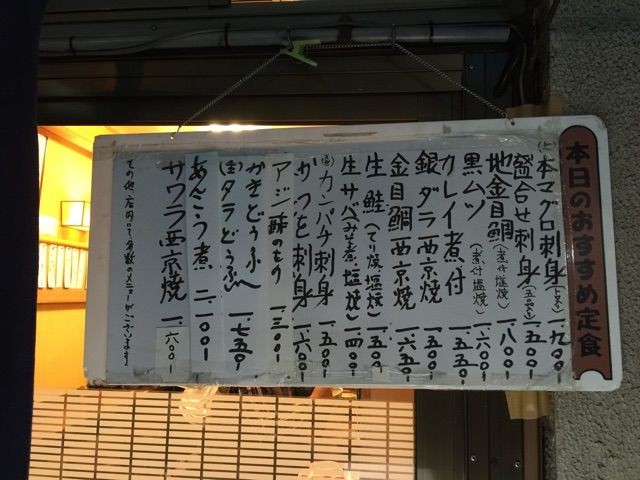 本日のおすすめ定食
(上)本マグロ刺身(トロ入) 一.九〇〇-
盛合せ刺身(五品盛) 一.五〇〇-
地金目鯛(煮付・塩焼) 一.八〇〇-
黒ムツ(煮付・塩焼) 一.六〇〇-
カレイ煮付 一.五五〇-
銀ダラ西京焼 一.五〇〇-
金目鯛西京焼 一.六五〇-
生鮭(てり焼・塩焼) 一.五〇〇-
生サバ(みそ煮・塩焼) 一.四〇〇-
カンパチ刺身 一.五〇〇-
かつを刺身 一.六〇〇-
アジ酢のもの 一.三〇〇-
かきどうふ
タラどうふ 一.七五〇-
あんこう煮 二.一〇〇-
サワラ西京焼 一.六〇〇-
その他、店内にて多数のメニューがございます。